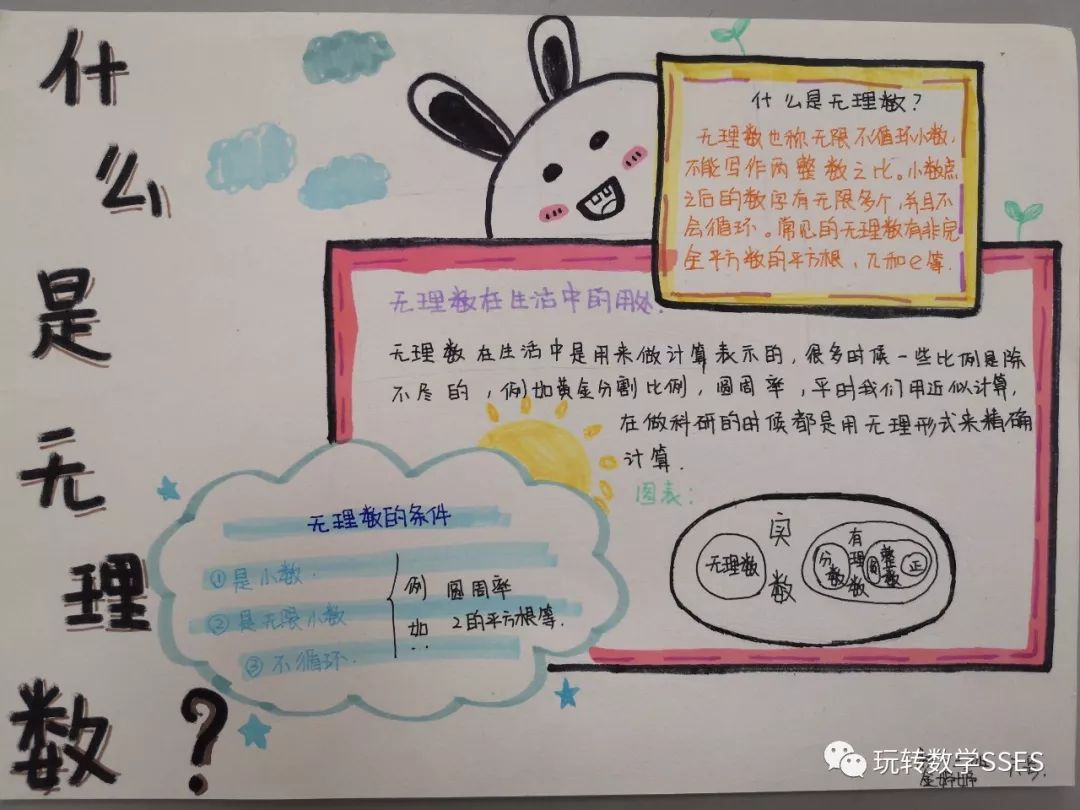 什么是无理数?
什么是无理数?
无理数也称无限不循环小数,
不能写作两整数之比。小数点
之后的数字有无限多个,并且不
会循环。常见的无理数有非完
全平方数的平方根,π和e等.
无理数在生活中的用处:
无理数在生活中是用来做计算表示的,很多时候一些比例是除
不尽的,例如黄金分割比例,圆周率,平时我们用近似计算,
在做科研的时候都是用无理形式来精确
计算.
图表:
实数
无理数
有理数
分数
整数
正
无理数的条件
①是小数.
②是无限小数
③不循环.
例如:
圆周率
2的平方根等.
玩转数学SSES